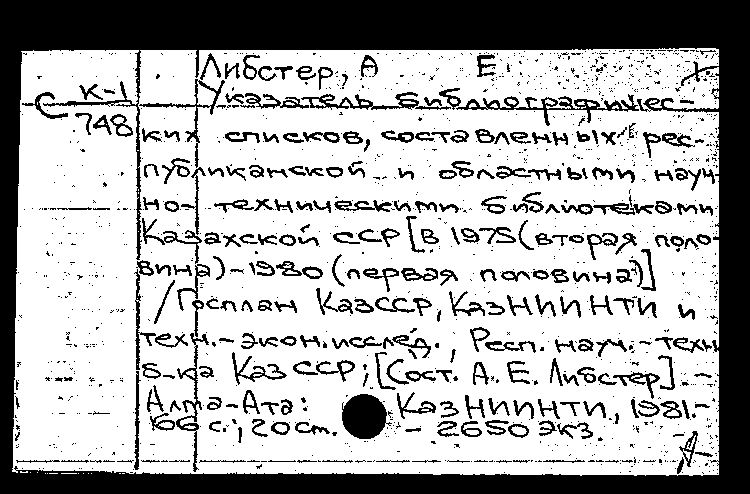 Либстер, А Е
С К-1
748
Указатель библиографичес-
ких списков, составленных рес-
публиканской и областными науч-
но-техническими библиотеками
Казахской ССР [в 1975 (вторая поло-
вина) - 1980 (первая половина)]
/Госплан КазССР, КазНИИНТИ и
техн.-экон. исслед., Респ. науч.-техн.
б-ка КазССР; [Сост. А. Е. Либстер]. -
Алма-Ата: КазНИИНТИ, 1981.-
166 с.; 20 см. - 2650 экз.